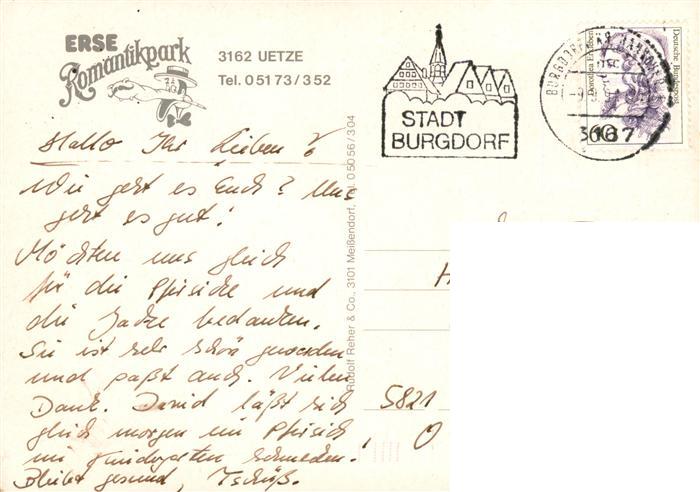 ERSE
Romantikpark
3162 UETZE
Tel. 05173/352
STADT
BURGDORF
Deutsche Bundespost
Hallo Ihr Lieben
Wie geht es Euch? Uns
geht es gut!
Möchten uns gleich
für die Pfirsiche und
die Jacke bedanken.
Sie ist sehr schön geworden
und paßt auch. Vielen
Dank. David läßt sich
gleich morgen ein Pfirsich
im Kindergarten schmecken!
Bleibt gesund, Tschüß.
Rudolf Reher & Co., 3101 Meißendorf, Tel. 05056/304
H
5821
O